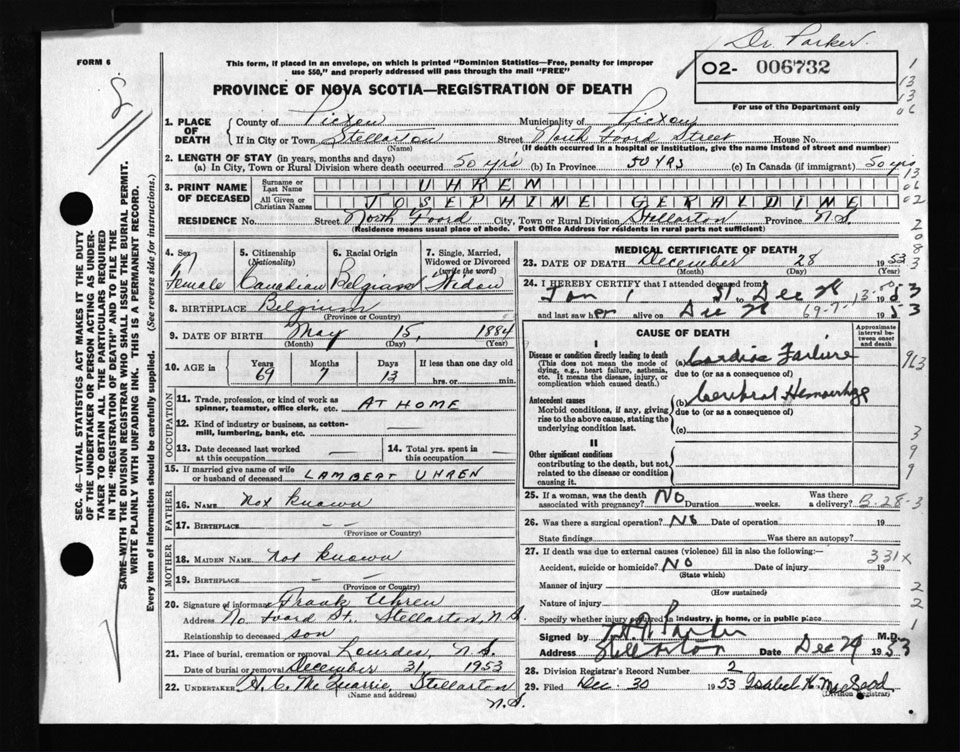 Dr. Parker.
FORM 6
This form, if placed in an envelope, on which is printed "Dominion Statistics—Free, penalty for improper
use $50," and properly addressed will pass through the mail "FREE"
02- 006732
For use of the Department only
PROVINCE OF NOVA SCOTIA—REGISTRATION OF DEATH
1. PLACE OF DEATH
County of Pictou Municipality of Pictou
If in City or Town Stellarton Street North Foord Street House No.
(Name) (If death occurred in a hospital or institution, give the name instead of street and number)
2. LENGTH OF STAY (in years, months and days)
(a) In City, Town or Rural Division where death occurred 50 yrs (b) In Province 50 yrs (c) In Canada (if immigrant) 50 yrs
3. PRINT NAME OF DECEASED
Surname or Last Name UHREN
All Given or Christian Names JOSEPHINE GERALDINE
RESIDENCE No. Street North Foord City, Town or Rural Division Stellarton Province N.S.
(Residence means usual place of abode. Post Office Address for residents in rural parts not sufficient)
4. Sex Female
5. Citizenship (Nationality) Canadian
6. Racial Origin Belgian
7. Single, Married, Widowed or Divorced (write the word) Widow
8. BIRTHPLACE Belgium
(Province or Country)
9. DATE OF BIRTH May 15, 1884
(Month) (Day) (Year)
10. AGE in Years 69 Months 7 Days 13 If less than one day old
hrs. or min.
OCCUPATION
11. Trade, profession, or kind of work as
spinner, teamster, office clerk, etc. AT HOME
12. Kind of industry or business, as cotton-
mill, lumbering, bank, etc. —
13. Date deceased last worked
at this occupation —
14. Total yrs. spent in
this occupation —
15. If married give name of wife
or husband of deceased LAMBERT UHREN
FATHER
16. NAME not known
17. BIRTHPLACE — —
(Province or Country)
MOTHER
18. MAIDEN NAME not known
19. BIRTHPLACE — —
(Province or Country)
20. Signature of informant Frank Uhren
Address No. Foord St. Stellarton, N.S.
Relationship to deceased son
21. Place of burial, cremation or removal Lourdes, N.S.
Date of burial or removal December 31, 1953
22. UNDERTAKER H. C. McQuarrie, Stellarton
(Name and address) N.S.
MEDICAL CERTIFICATE OF DEATH
23. DATE OF DEATH December 28 1953
(Month) (Day) (Year)
24. I HEREBY CERTIFY that I attended deceased from:
Jan 1 51 to Dec 28 1953
and last saw her alive on Dec 28 69-7-13-00 1953
CAUSE OF DEATH
Approximate interval between onset and death
I
Disease or condition directly leading to death
(This does not mean the mode of
dying, e.g., heart failure, asthenia,
etc. It means the disease, injury, or
complication which caused death.)
(a) Cardiac Failure
due to (or as a consequence of)
Antecedent causes
Morbid conditions, if any, giving
rise to the above cause, stating the
underlying condition last.
(b) Cerebral Hemorrhage
due to (or as a consequence of)
(c)
II
Other significant conditions
contributing to the death, but not
related to the disease or condition
causing it.
25. If a woman, was the death
associated with pregnancy? No Duration weeks. Was there
a delivery? B-28-3
26. Was there a surgical operation? No Date of operation 19
State findings Was there an autopsy?
27. If death was due to external causes (violence) fill in also the following:— 331X
Accident, suicide or homicide? No Date of injury 19
(State which)
Manner of injury
(How sustained)
Nature of injury
Specify whether injury occurred in industry, in home, or in public place
Signed by Parker M.D.
Address Stellarton Date Dec 29 1953
28. Division Registrar's Record Number 2
29. Filed Dec 30 1953 Isabel K. MacLeod
(Division Registrar)
SEC. 46—VITAL STATISTICS ACT MAKES IT THE DUTY
OF THE UNDERTAKER OR PERSON ACTING AS UNDER-
TAKER TO OBTAIN ALL THE PARTICULARS REQUIRED
IN THE "REGISTRATION OF DEATH" AND TO FILE THE
SAME WITH THE DIVISION REGISTRAR WHO SHALL ISSUE THE BURIAL PERMIT.
WRITE PLAINLY WITH UNFADING INK. THIS IS A PERMANENT RECORD.
Every item of information should be carefully supplied. (See reverse side for instructions.)
1
13
13
06
13
06
02
2
0
8
3
963
3
9
9
9
2
2
1